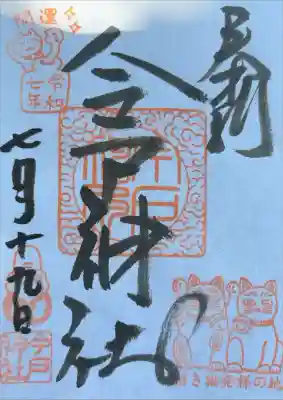 奉拝
今戸神社
開運
令和
七年
七月十九日
今戸
神社
招き猫発祥の地